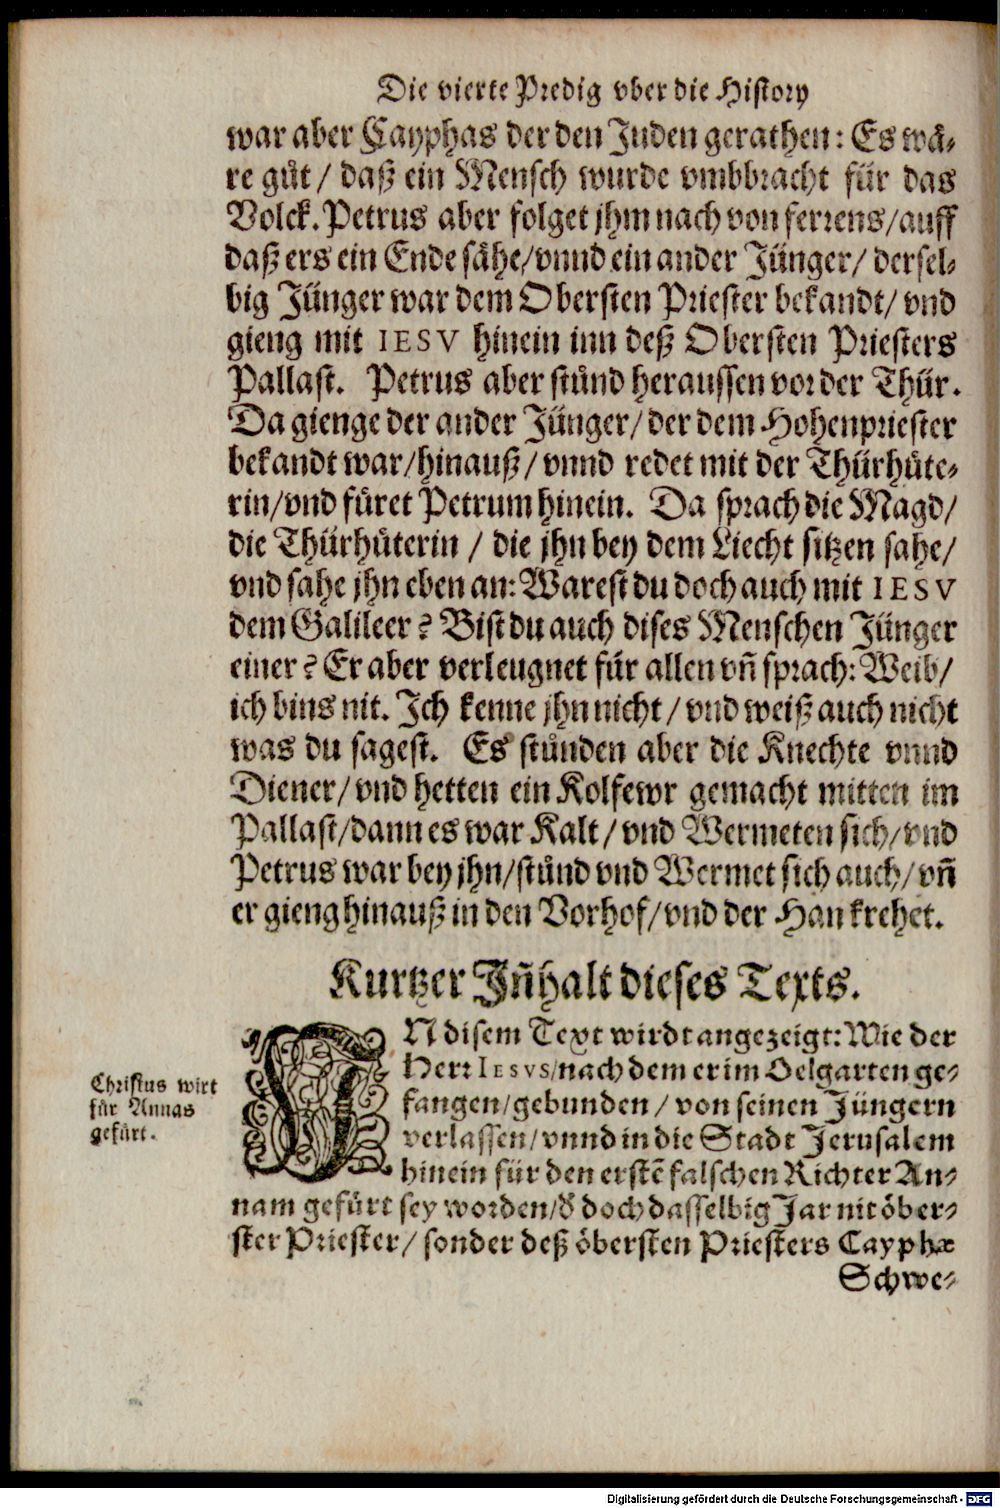 Die vierte Predig vber die History
war aber Cayphas der den Juden gerathen: Es wä-
re gůt / daß ein Mensch wurde vmbbracht für das
Volck. Petrus aber folget jhm nach von ferrens/auff
daß ers ein Ende sähe/vnnd ein ander Jünger/ dersel-
big Jünger war dem Obersten Priester bekandt/ vnd
gieng mit IESV hinein inn deß Obersten Priesters
Pallast. Petrus aber stůnd heraussen vor der Thür.
Da gienge der ander Jünger/ der dem Hohenpriester
bekandt war/hinauß/vnnd redet mit der Thürhüte-
rin/vnd füret Petrum hinein. Da sprach die Magd/
die Thürhüterin / die jhn bey dem Liecht sitzen sahe/
vnd sahe jhn eben an: Warest du doch auch mit IESV
dem Galileer? Bist du auch dises Menschen Jünger
einer? Er aber verleugnet für allen vñ sprach: Weib/
ich bins nit. Ich kenne jhn nicht / vnd weiß auch nicht
was du sagest. Es stůnden aber die Knechte vnnd
Diener/ vnd hetten ein Kolfewr gemacht mitten im
Pallast/dann es war Kalt / vnd Wermeten sich/ vnd
Petrus war bey jhn/stůnd vnd Wermet sich auch/ vñ
er gieng hinauß in den Vorhof/vnd der Han krehet.
Kurtzer Iñhalt dieses Texts.
IN disem Text wirdt angezeigt: Wie der
Herr IESVS/nach dem er im Oelgarten ge-
fangen/gebunden / von seinen Jüngern
verlassen/vnnd in die Stadt Jerusalem
hinein für den erstẽ falschen Richter An-
nam gefürt sey worden/d' doch dasselbig Jar nit öber-
ster Priester/ sonder deß öbersten Priesters Cayphæ
Schwe-
Christus wirt
für Annas
gefürt.
Digitalisierung gefördert durch die Deutsche Forschungsgemeinschaft - DFG